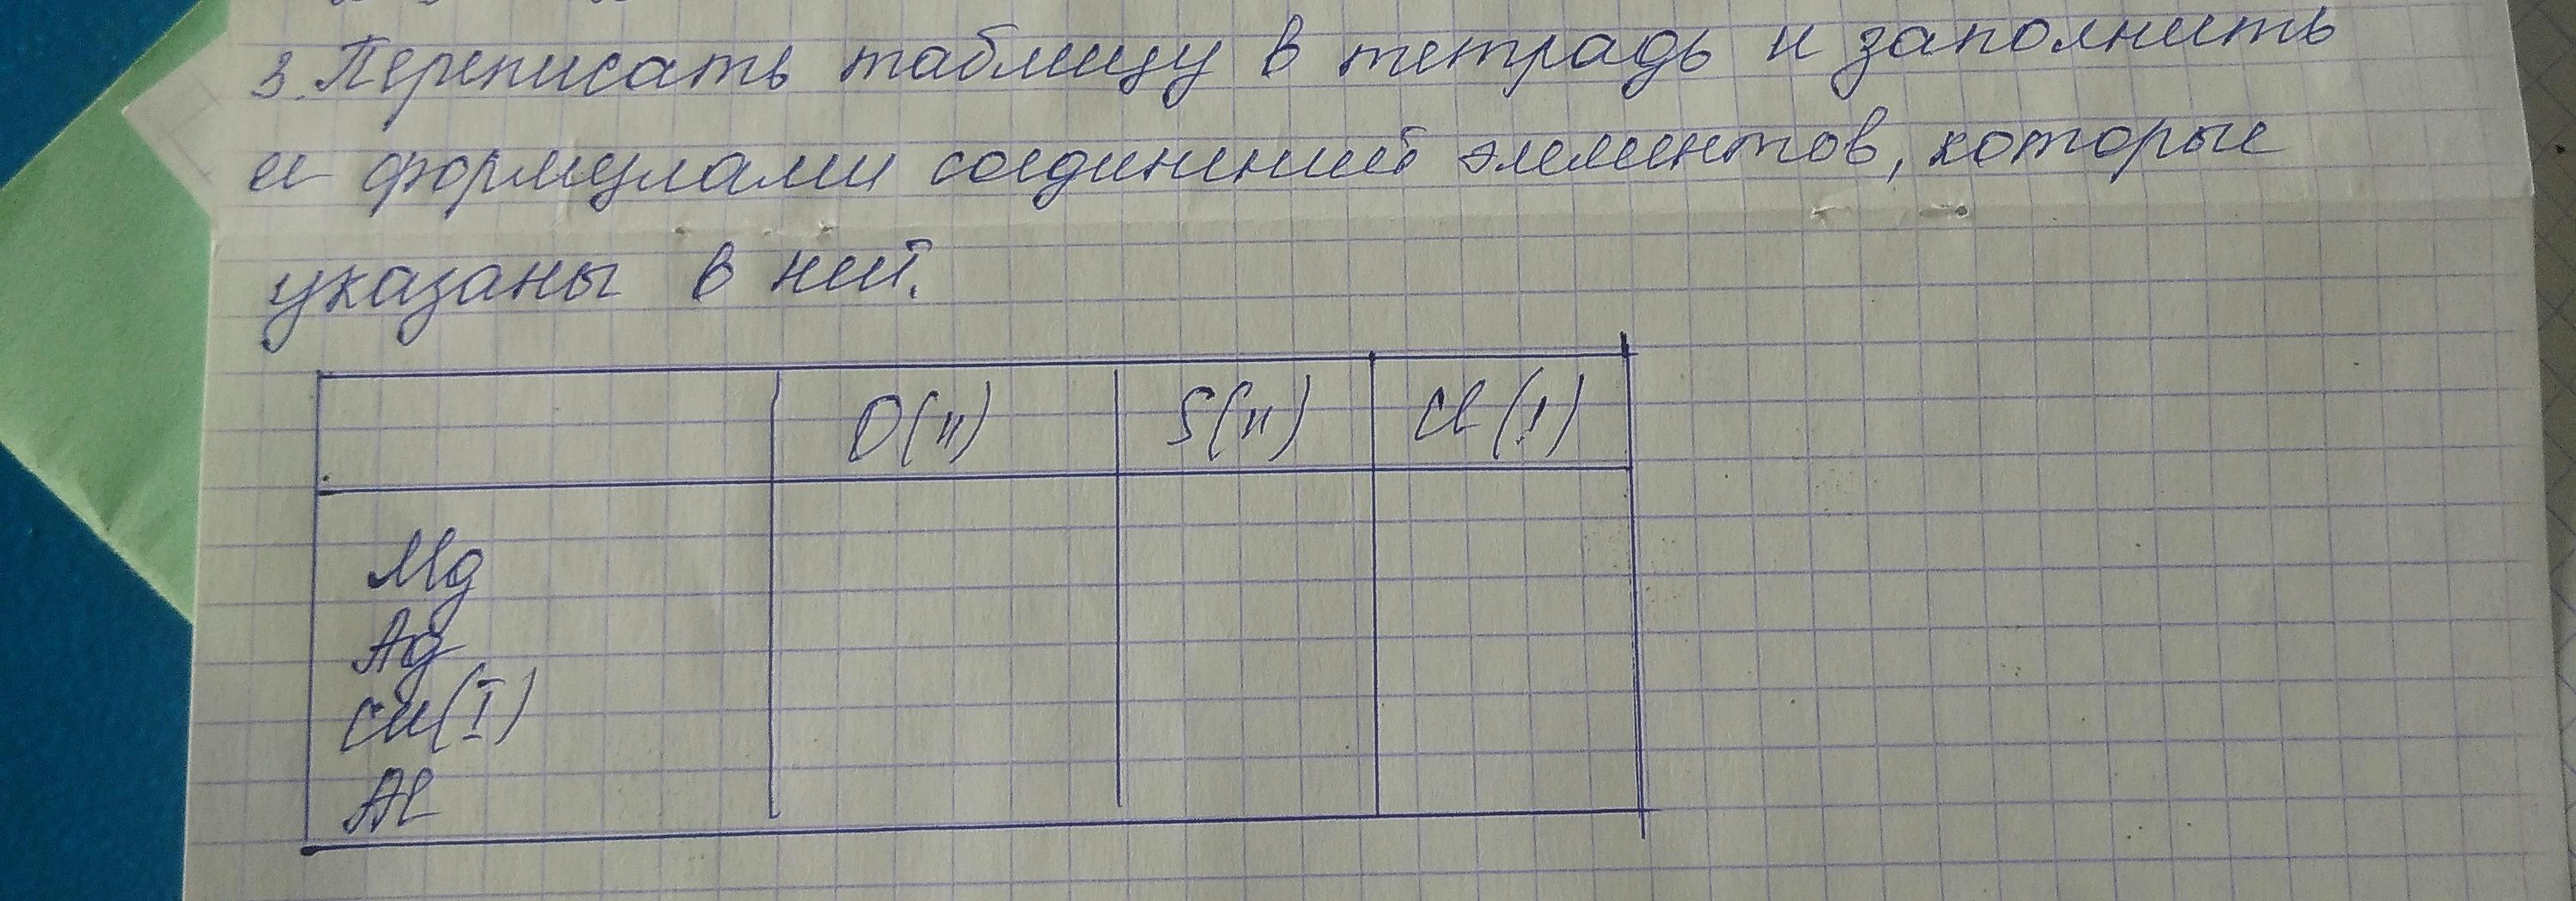 3. Переписать таблицу в тетрадь и заполнить
её формулами соединений элементов, которые
указаны в ней.
O(II) S(II) Cl(I)
Mg
Ag
Cu(I)
Al